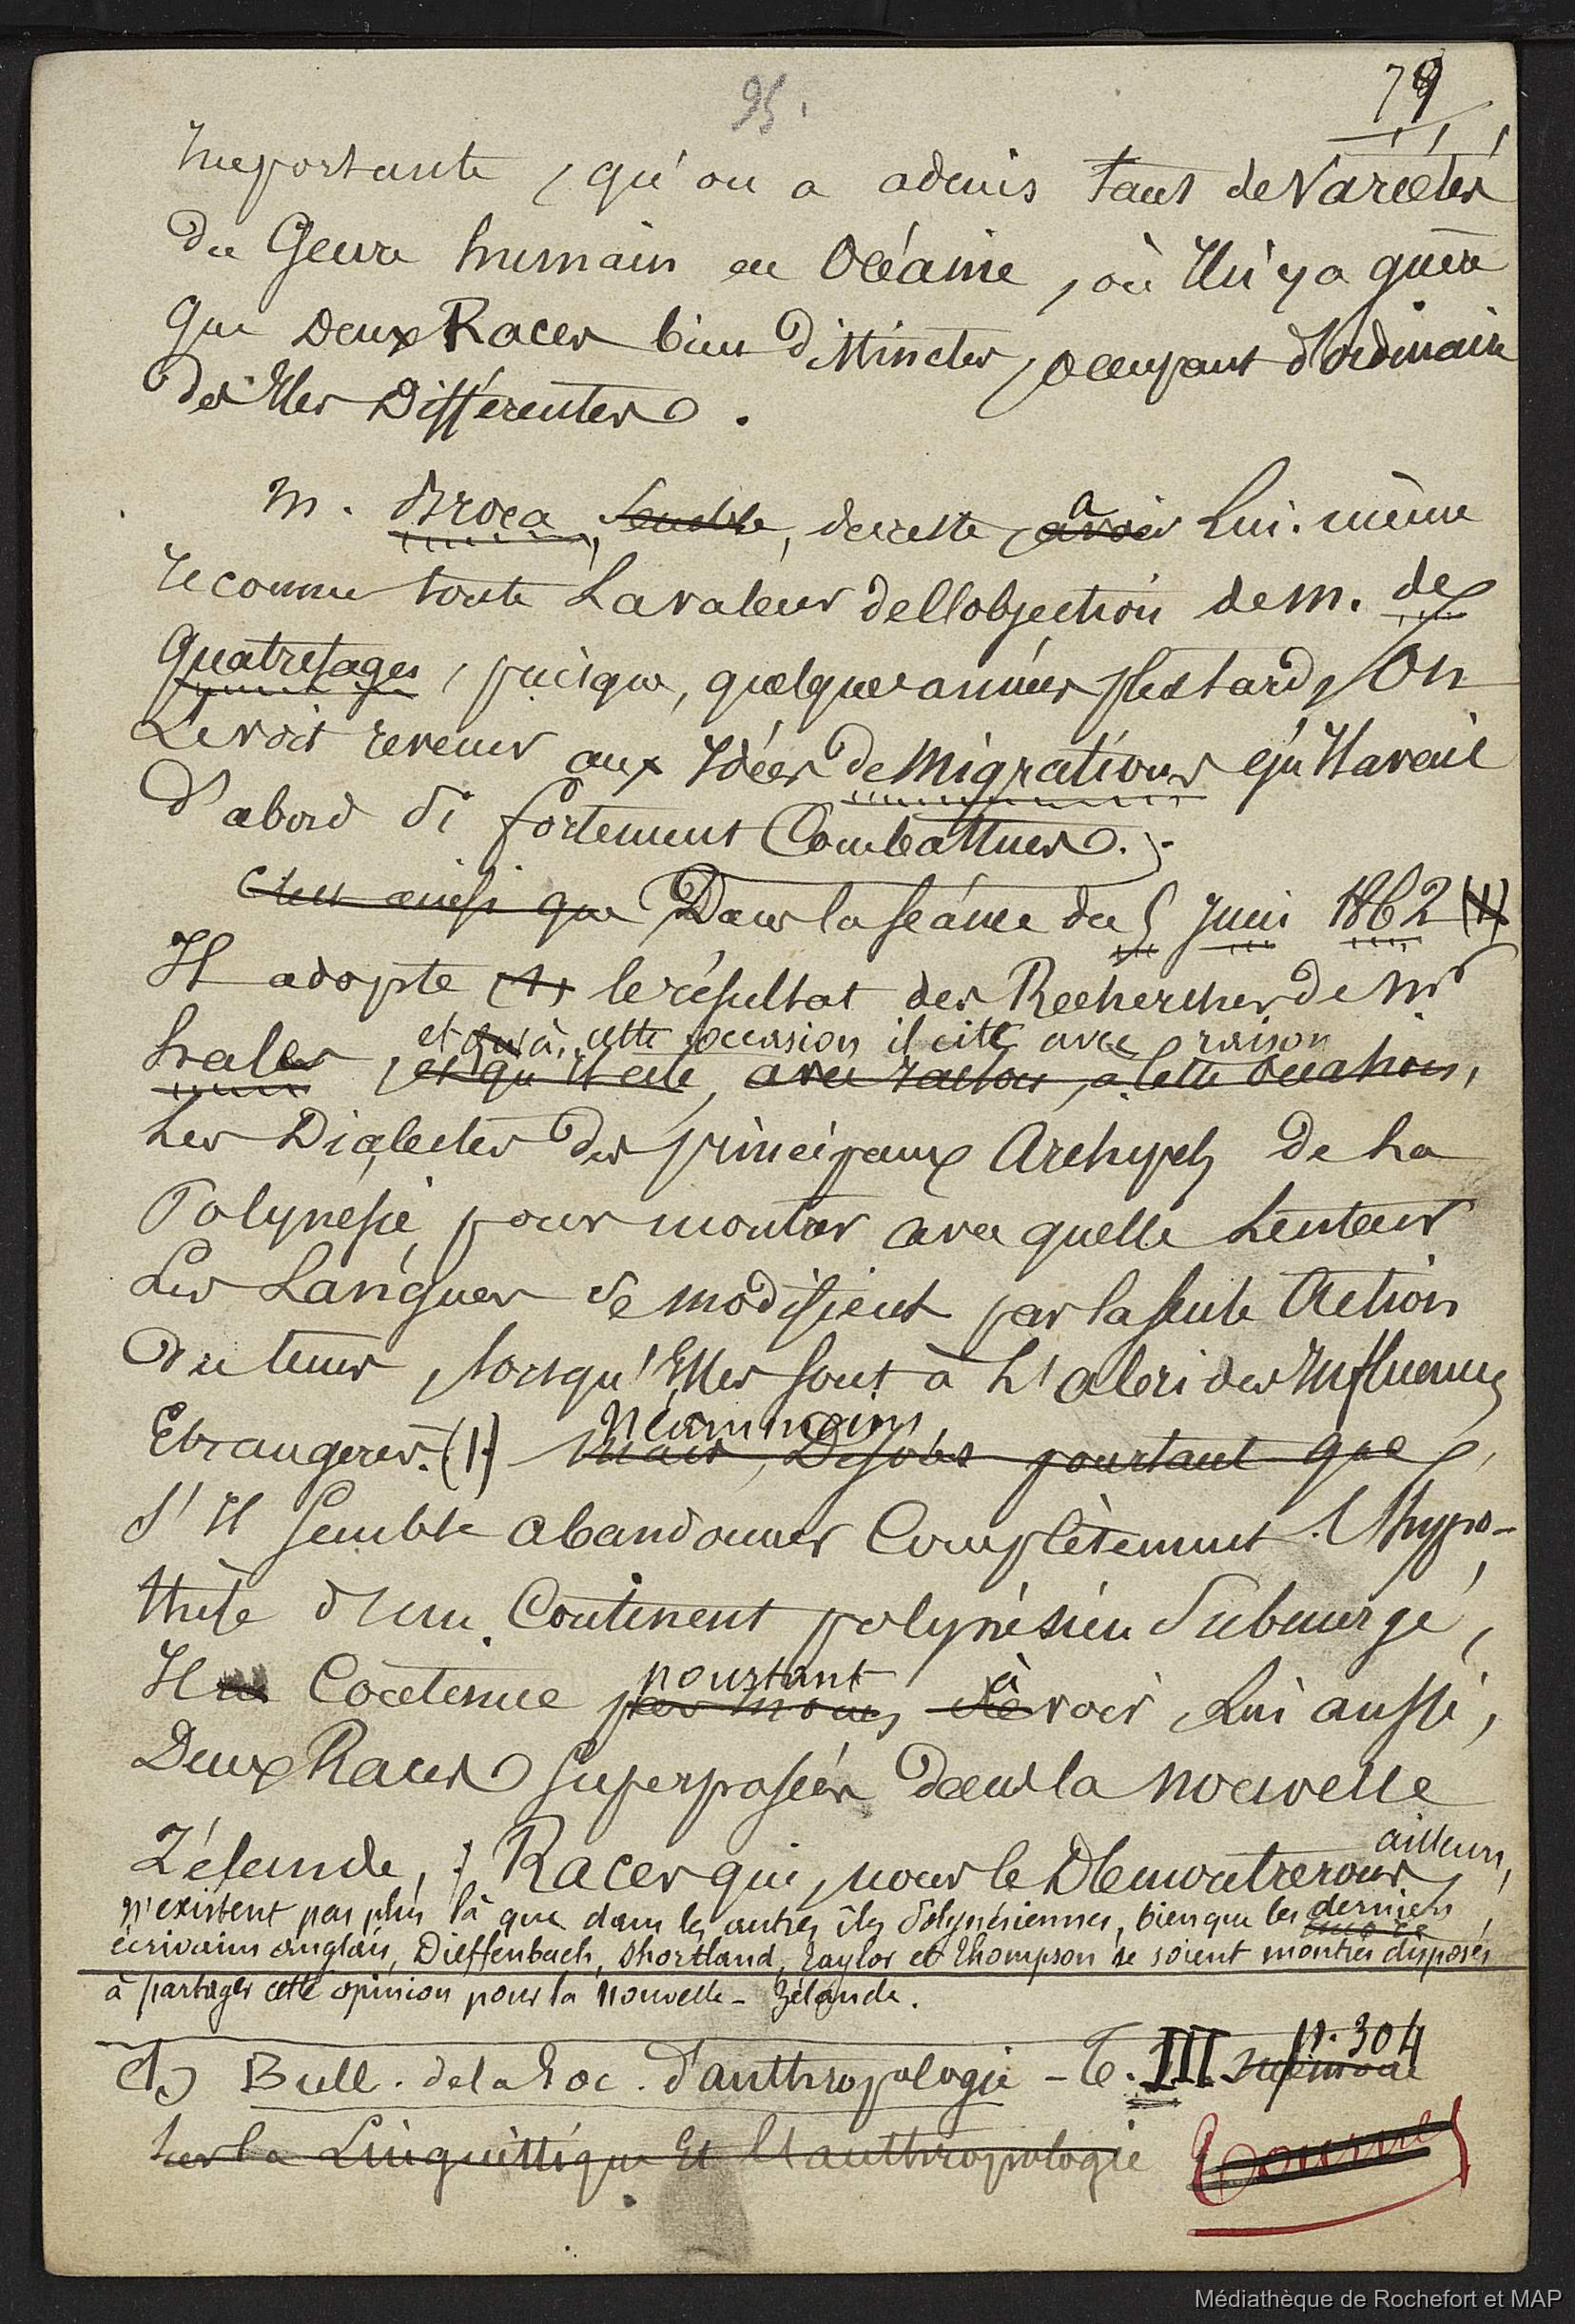 95.
79
Importante, qu'on a admis tant de Variétés
du Genre humain en Océanie, où Il n'y a guère
que Deux Races bien Distinctes, occupant d'ordinaire
des Iles Différentes.
M. Broca, semble, dureste, avoir a Lui-même
reconnu toute La valeur del'objection de M. de
Quatrefages, puisque, quelques années plustard, On
Le voit revenir aux Idées de Migrations qu'Il avait
d'abord si fortement Combattues.
C'est ainsi que Dans la séance du 5 Juin 1862 (1)
Il adopte (1) le résultat des Recherches de Mr
hales, et qu'à cette occasion il cite avec raison
et qu'il cite, avec raison, à cette occasion,
Les Dialectes des principaux Archipels de La
Polynésie, pour montrer avec quelle Lenteur
Les Langues se modifient par la seule Action
du tems, lorsqu'Elles sont à L'abri des Influences
Etrangères. (1) Néanmoins
Mais, Disons pourtant que,
s'Il semble abandonner Complètement L'hypo-
thèse d'un Continent polynésien Submergé,
Il ne Continue pas moins pourtant de à voir, Lui aussi,
Deux Races superposées dans la nouvelle
Zélande, ; Races qui, nous le Démontrerons ailleurs,
n'existent pas plus là que dans les autres îles Polynésiennes, bien que les derniers
écrivains anglais, Dieffenbach, Shortland, Taylor et Thompson se soient montrés disposés
à partager cette opinion pour la Nouvelle-Zélande.
(1) Bull. de la Soc. d'anthropologie - T. III p. 304 mémoire
sur la Linguistique Et L'anthropologie Tournez
Médiathèque de Rochefort et MAP